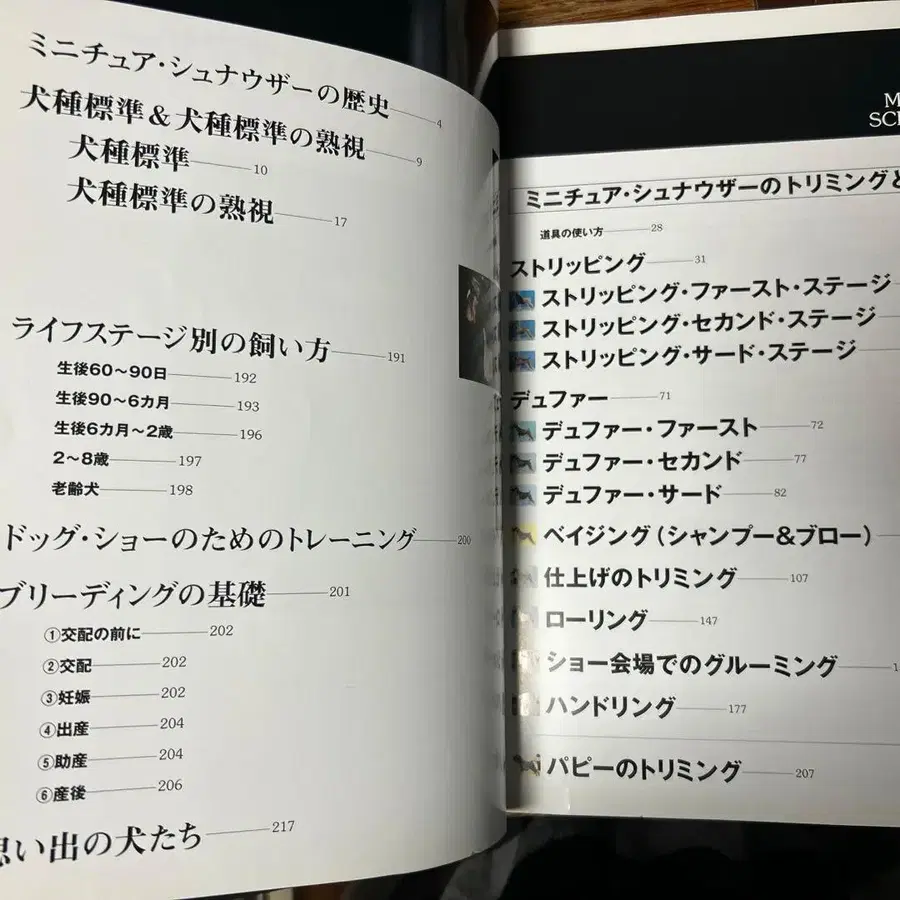 ミニチュア・シュナウザーの歴史 4
犬種標準&犬種標準の熟視 9
犬種標準 10
犬種標準の熟視 17
ライフステージ別の飼い方 191
生後60〜90日 192
生後90〜6カ月 193
生後6カ月〜2歳 196
2〜8歳 197
老齢犬 198
ドッグ・ショーのためのトレーニング 200
ブリーディングの基礎 201
①交配の前に 202
②交配 202
③妊娠 202
④出産 204
⑤助産 204
⑥産後 206
思い出の犬たち 217
M
SC
ミニチュア・シュナウザーのトリミングと
道具の使い方 28
ストリッピング 31
ストリッピング・ファースト・ステージ
ストリッピング・セカンド・ステージ
ストリッピング・サード・ステージ
デュファー 71
デュファー・ファースト 72
デュファー・セカンド 77
デュファー・サード 82
ベイジング(シャンプー&ブロー)
仕上げのトリミング 107
ローリング 147
ショー会場でのグルーミング
ハンドリング 177
パピーのトリミング 207